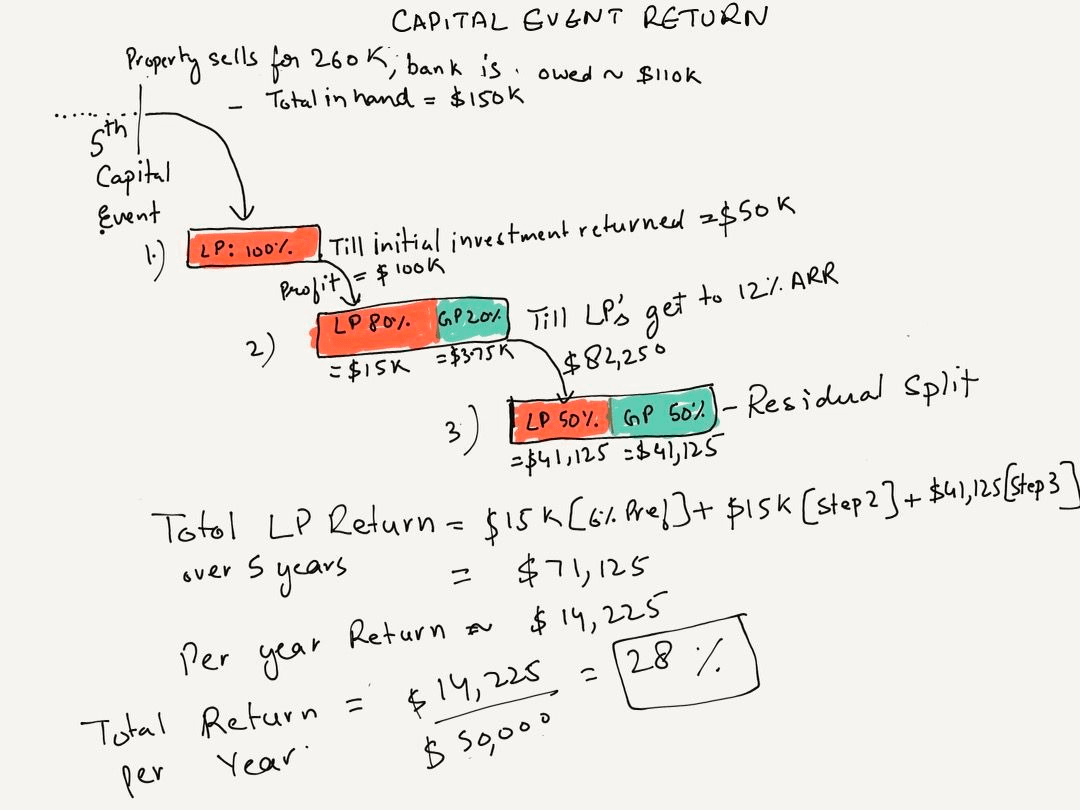 CAPITAL EVENT RETURN
Property sells for 260K, bank is owed ~ $110K
- Total in hand = $150K
5th
Capital
Event
1.) LP: 100% Till initial investment returned = $50K
Profit = $100K
2) LP 80% GP 20% Till LP's get to 12% ARR
= $15K = $3.75K $82,250
3) LP 50% GP 50% - Residual Split
= $41,125 = $41,125
Total LP Return = $15K [6% Pref] + $15K [Step 2] + $41,125 [Step 3]
over 5 years = $71,125
Per year Return ~ $14,225
Total Return = $14,225 = 28 %
per Year $50,000